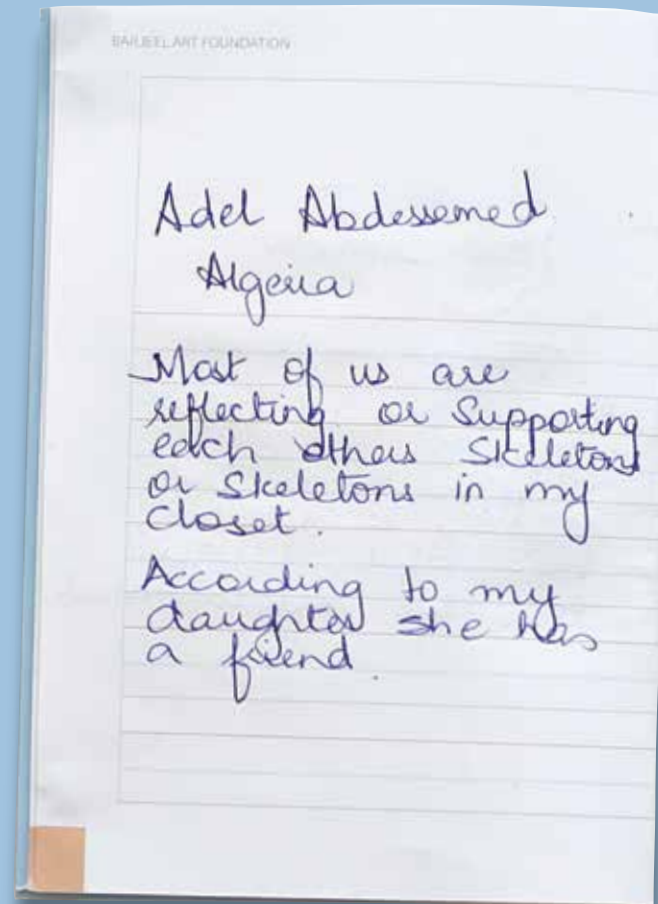 BARJEEL ART FOUNDATION
Adel Abdessemed
Algeria
Most of us are
reflecting or Supporting
each others Skeletons
or Skeletons in my
closet.
According to my
daughter she has
a friend.